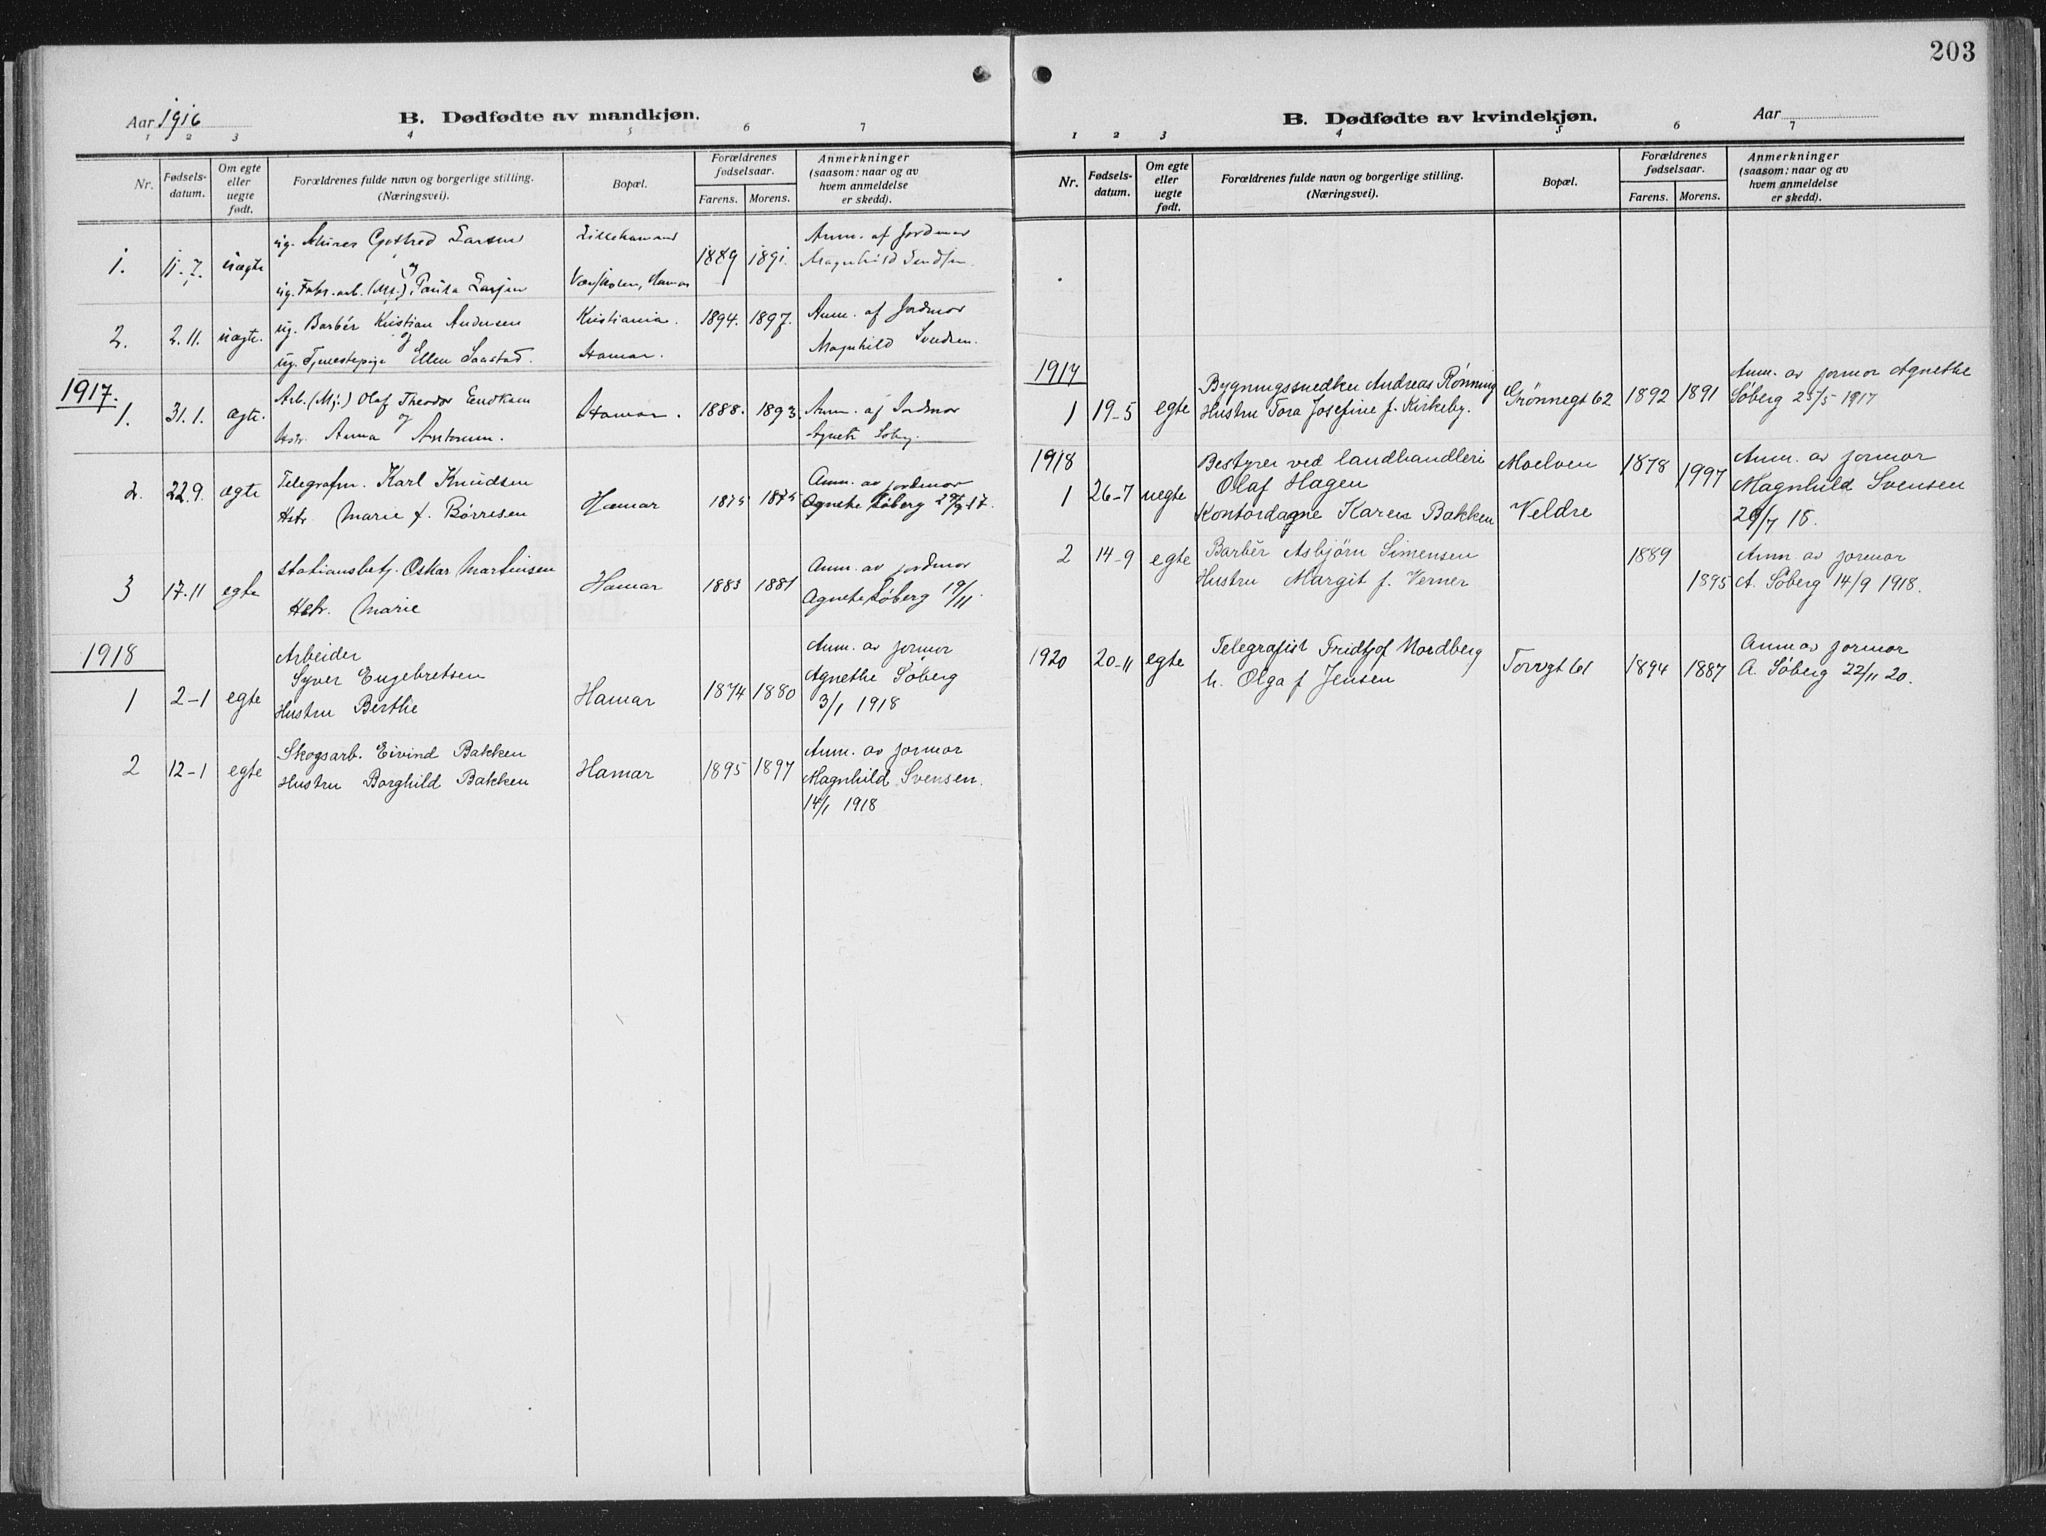 203
Aar 1916
B. Dødfødte av mandkjøn.
1 2 3 4 5 6 7
Nr.
Fødsels-
datum.
Om egte
eller
uegte
født.
Forældrenes fulde navn og borgerlige stilling.
(Næringsvei).
Bopæl.
Forældrenes
fødselsaar.
Farens. Morens.
Anmerkninger
(saasom: naar og av
hvem anmeldelse
er skedd).
ug. Gothred Larsen Lillehammer Anm. af Jordmor
1. 11.7. uægte og 1889 1891. Magnhild
ug. Fabr. arb. Paula Larsen Hamar
ug. Barbér Kristian Andersen Kristiania. 1894. 1897. Anm. af Jordmor
2. 2.11. uægte. og
ug. Tjenestepige Ellen Saastad. Hamar. Magnhild Svendsen.
1917.
Arb. (Mj.) Olaf Theodor
1. 31.1. ægte. og Hamar. 1888. 1893. Anm. af Jordmor
Hstr. Anna Agnete Søberg.
Telegrafm. Karl Knudsen Anm. av jordmor
2. 22.9. ægte Hamar 1875 1875 Agnete Søberg
Hstr. Marie f. Børresen
Stationsbetj. Oskar Martinsen Anm. av jordmor
3 17.11 egte Hamar 1883 1881 Agnete Søberg 19/11.
Hstr. Marie
1918
Arbeider Anm. av jormor
Syver Engebretsen Agnethe Søberg
1 2-1 egte Hustru Berthe Hamar 1874 1880 3/1 1918
Skogsarb. Eivind Bakken Anm. av jormor
2 12-1 egte Hustru Borghild Bakken Hamar 1895 1897 Magnhild Svensen.
14/1 1918
B. Dødfødte av kvindekjøn.
Aar
1 2 3 4 5 6 7
Nr.
Fødsels-
datum.
Om egte
eller
uegte
født.
Forældrenes fulde navn og borgerlige stilling.
(Næringsvei).
Bopæl.
Forældrenes
fødselsaar.
Farens. Morens.
Anmerkninger
(saasom: naar og av
hvem anmeldelse
er skedd).
1917
Bygningssnedker Andreas Rønning Anm. av jormor Agnethe
1 19-5 egte Hustru Tora Josefine f. Kirkeby. Grønnegt 62 1892 1891 Søberg 25/5 1917
1918 Bestyrer ved landhandleri Moelven 1878 1997 Anm. av jormor
1 26-7 uegte Olaf Hagen Magnhild Svensen
Kontordame Karen Bakken Veldre 26/7 18.
2 14-9 egte Barbér Asbjørn Simensen 1889 Anm av jormor
Hustru Margit f. Verner 1895 A. Søberg 14/9 1918.
1920 20-11 egte Telegrafist Fridtjof Nordberg Torvgt 61 1894 1887 Anm av jormor
h. Olga f Jensen A. Søberg 22/11 20.